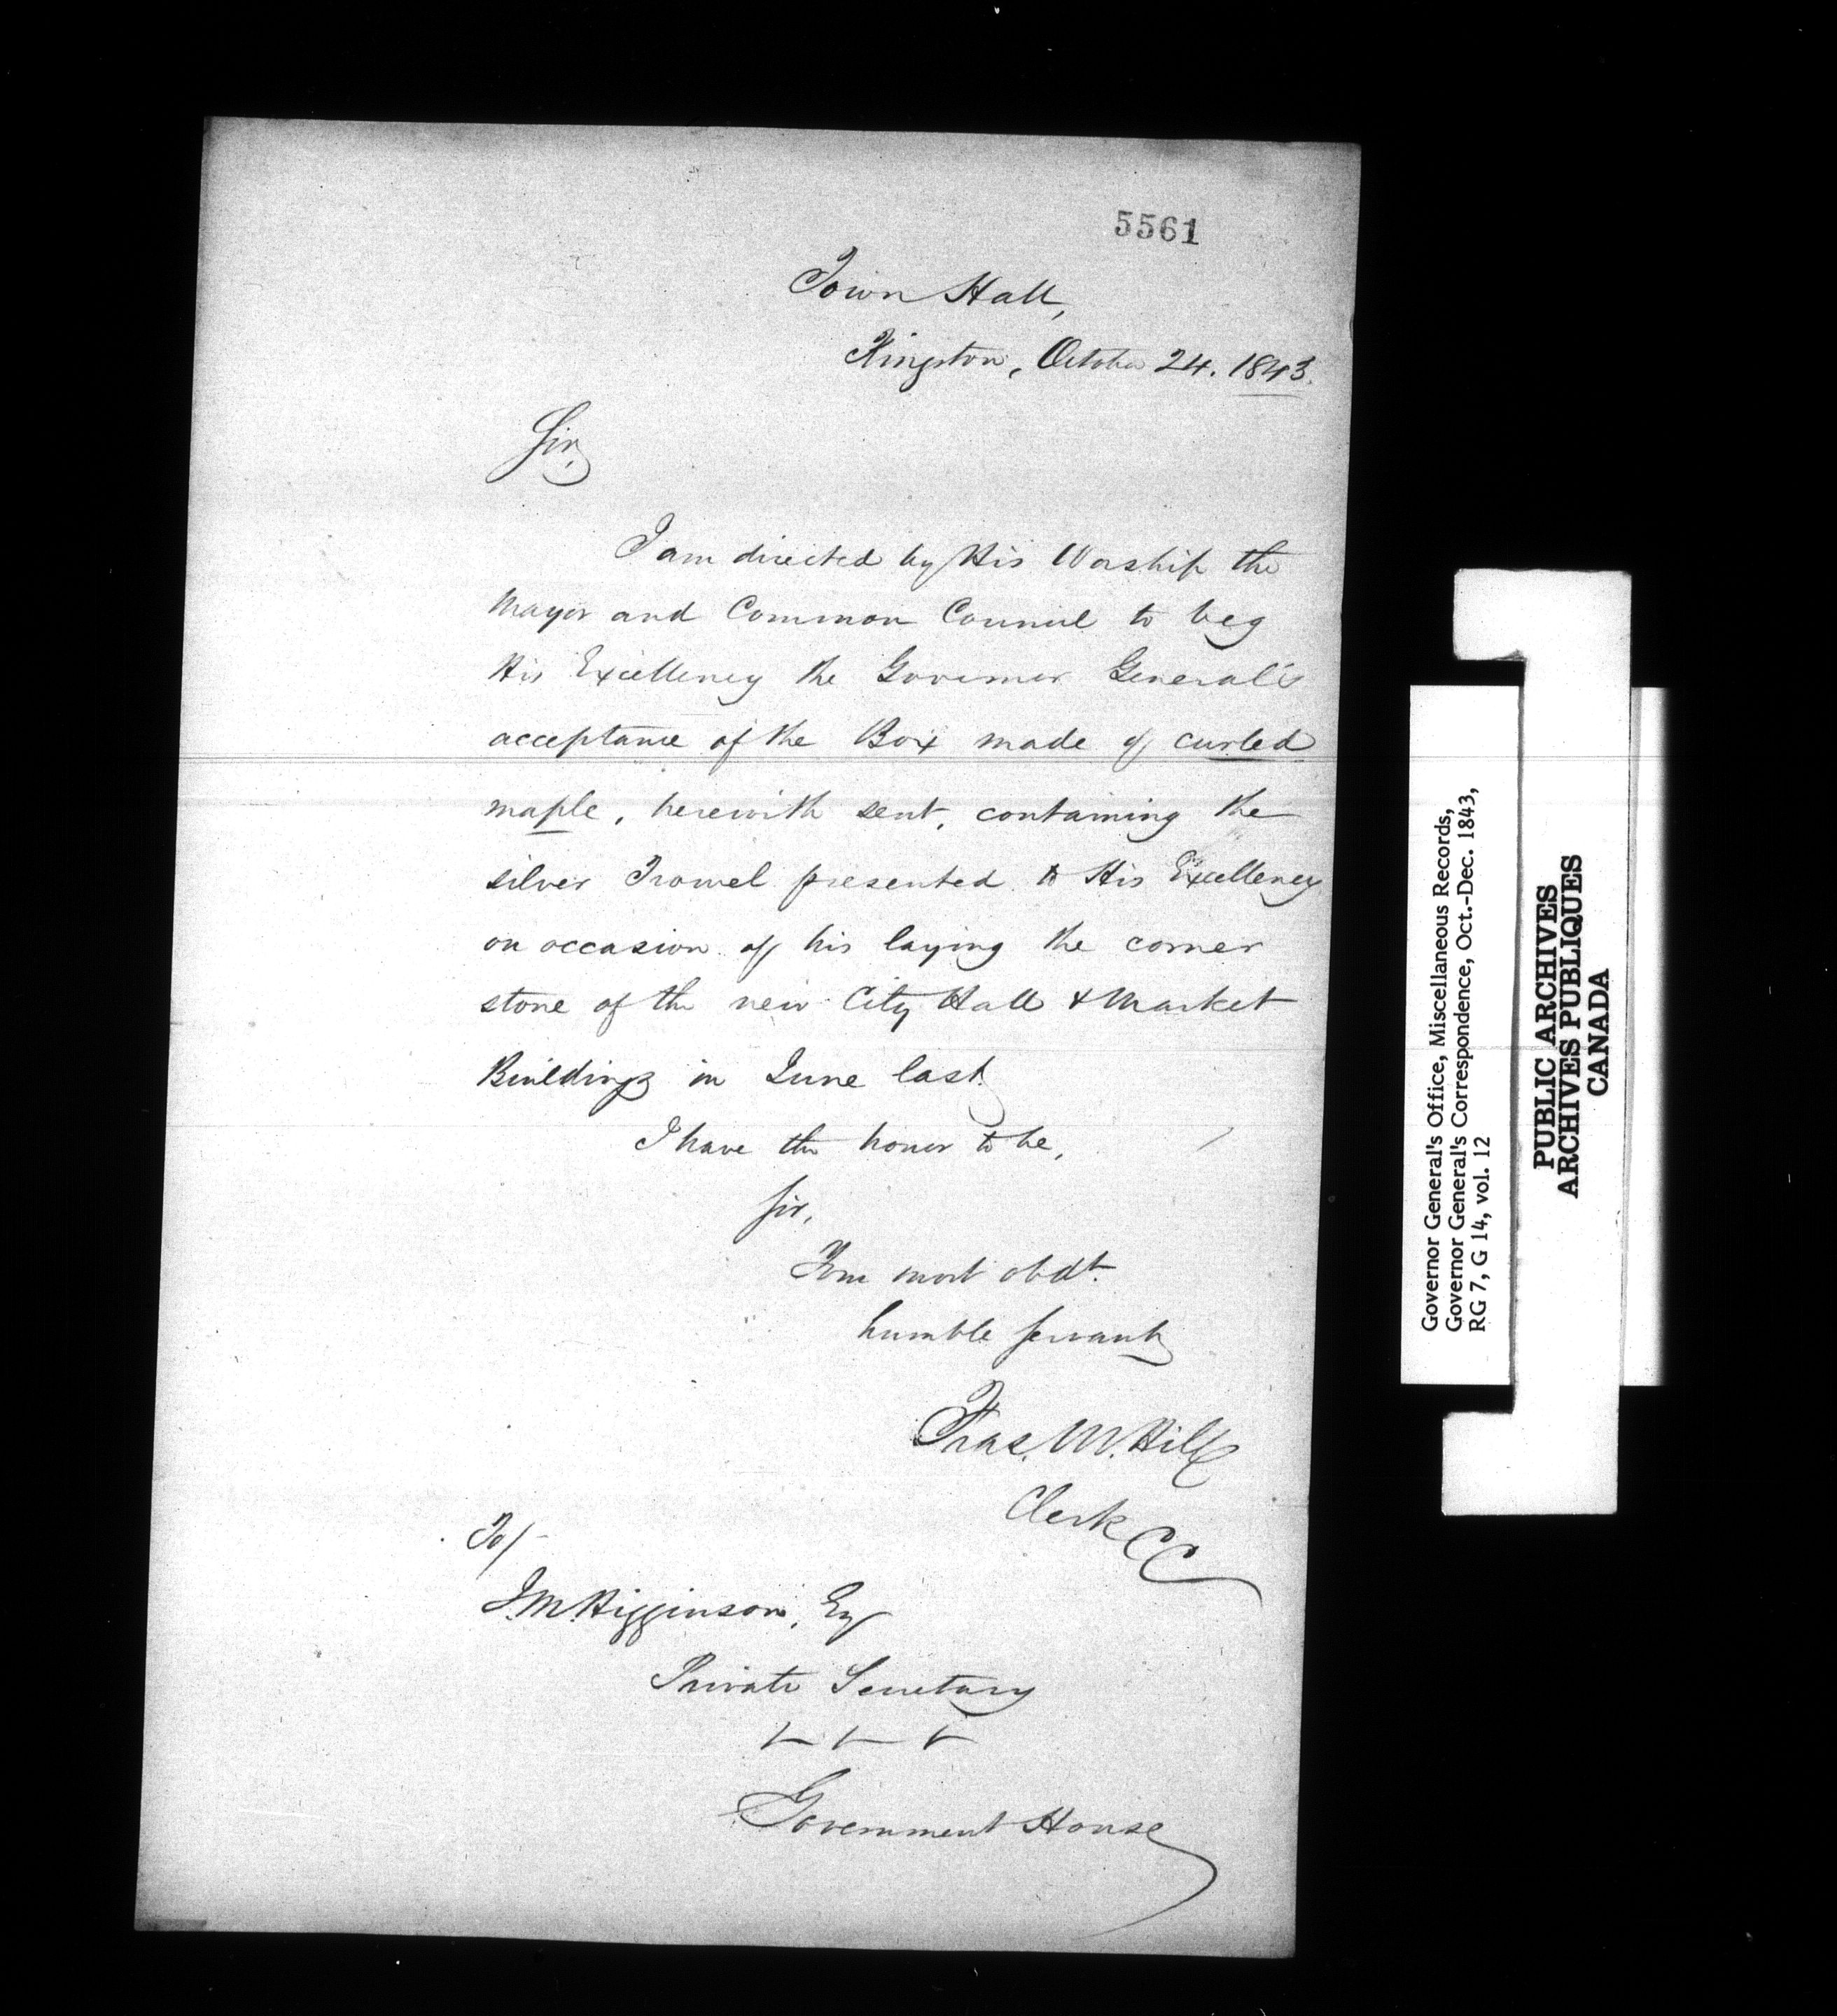 5561
Town Hall,
Kingston, October 24. 1843.
Sir,
I am directed by His Worship the
Mayor and Common Council to beg
His Excellency the Governor General's
acceptance of the Box made of curled
maple, herewith sent, containing the
silver Trowel presented to His Excellency
on occasion of his laying the corner
stone of the new City Hall & Market
Buildings in June last.
I have the honor to be,
Sir,
Your most obdt.
humble servant
Fras. M. Hill
Clerk CC
To/-
J.M. Higginson, Esq
Private Secretary
Government House
Governor General's Office, Miscellaneous Records,
Governor General's Correspondence, Oct.-Dec. 1843,
RG 7, G 14, vol. 12
PUBLIC ARCHIVES
ARCHIVES PUBLIQUES
CANADA